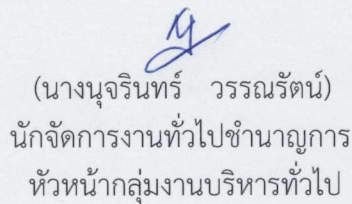 (นางนุจรินทร์ วรรณรัตน์)
นักจัดการงานทั่วไปชำนาญการ
หัวหน้ากลุ่มงานบริหารทั่วไป